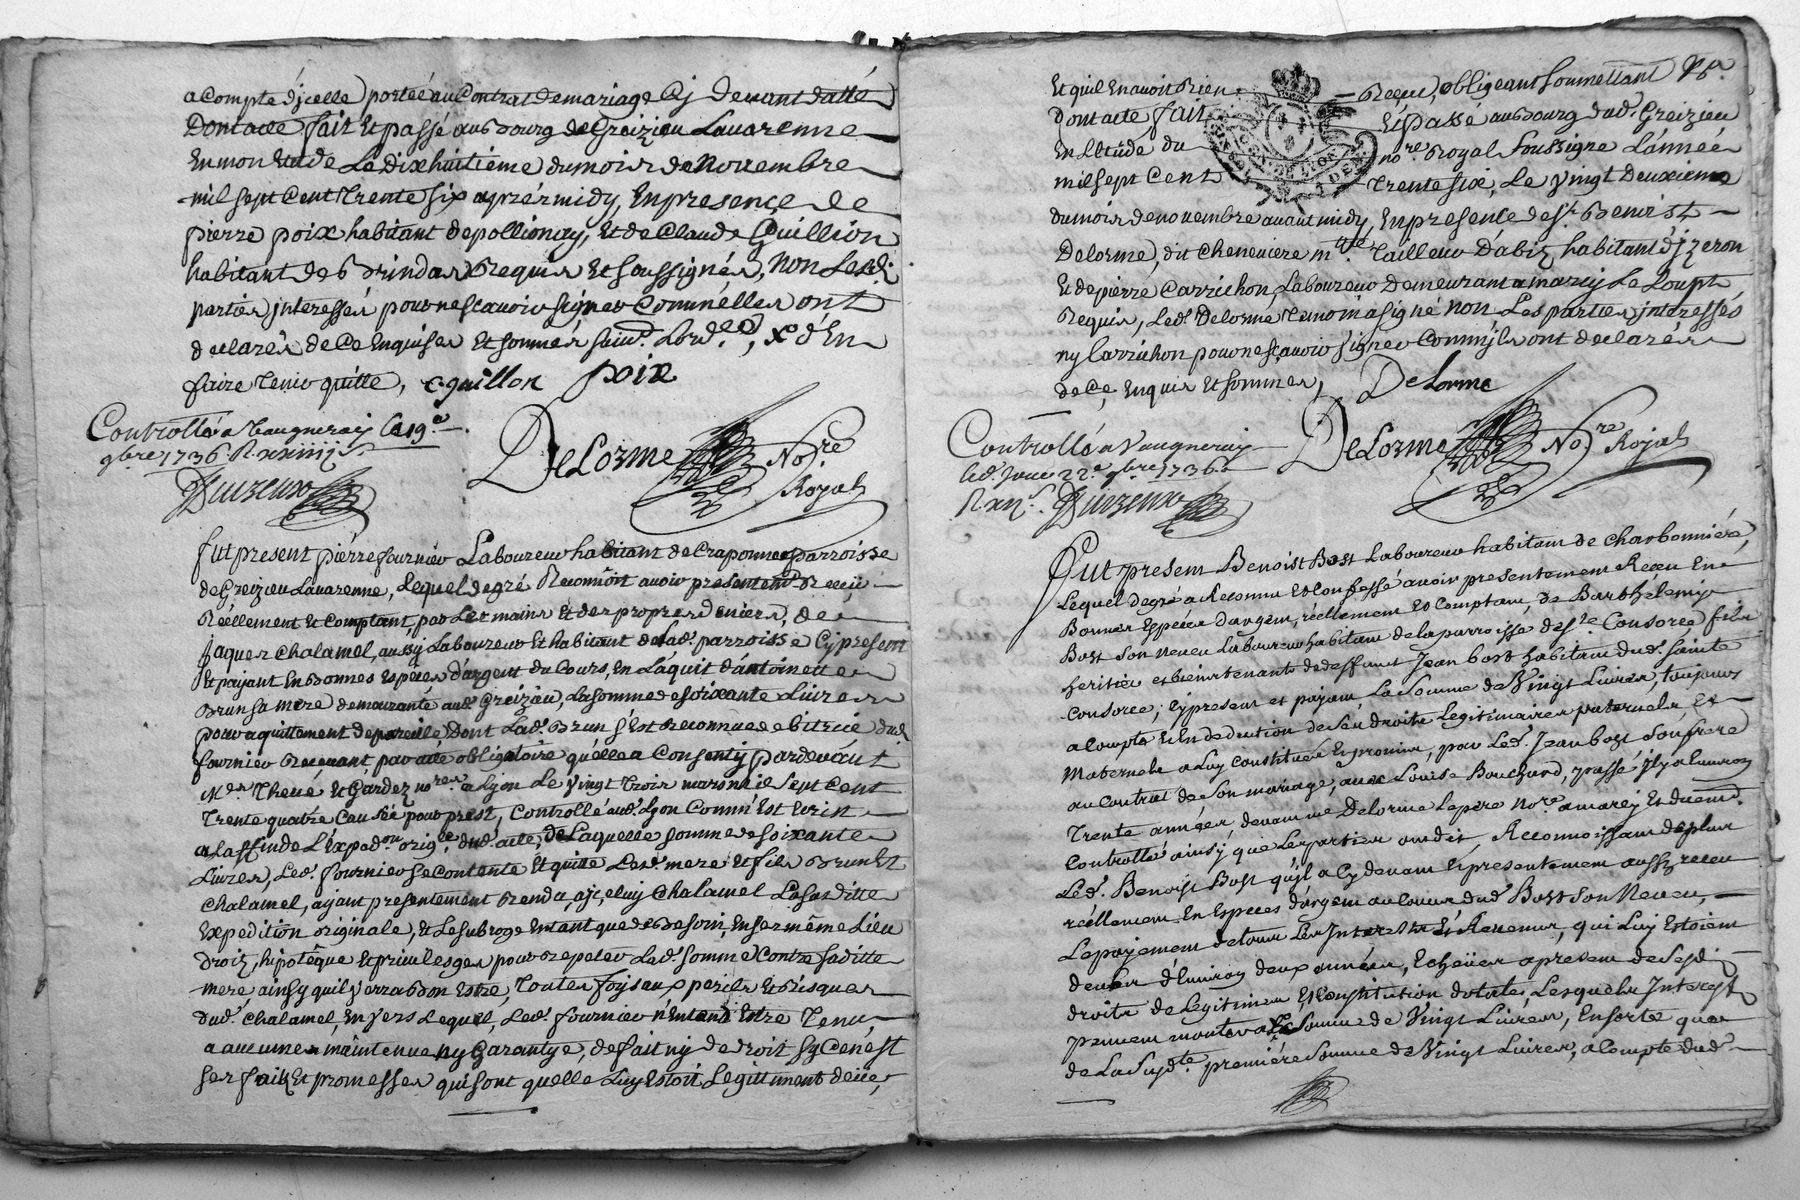 acompte d'jcelle portée au Contrat de mariage Cy devant datté
Dont acte fait Et passé au bourg de Greizieu Lavarenne
En mon Etude Le dix huitieme du mois de Novembre
mil sept Cent Trente six aprés midy, En presence de
pierre poix habitant de pollionay, Et de Claude Guillion
habitant de Brindas Requis Et soussignés, Non Lesd.
parties jnteressés pour ne scavoir signer Comm'elles ont
declarés de Ce Enquises Et sommés
faire Tenir quitte, C. guillon poix
Controllé a Vaugneray Le 19e
9bre 1736. R
DeLorme Nore
Royal
fut present pierre fournier Laboureur habitant de Craponne parroisse
de Greizieu Lavarenne, Lequel de gré Reconnoit avoir presentemt Reçeu
Réellement Et Comptant, par Les mains Et des propres deniers, de
jaques Chalamel, aussy Laboureur Et habitant de lad. parroisse Cy present
Et payant En Bonnes Especes d'argent du Cours, En L'aquit d'antoinette
Brun sa mere demeurante aud. Greizieu, La somme de soixante Livres
pour aquittement de pareille Dont Lad. Brun s'Est Reconnue debitrice dud.
fournier Recevant, par acte obligatoire qu'elle a Consenty pardevant
Mes Theve Et Gardez nores a Lyon Le vingt Trois mars mil sept Cent
Trente quatre Causée pour prest, Controllé aud. Lyon Comm'Est Ecrit
a La fin de L'Expedon origle dud. acte, de Laquelle somme de soixante
Livres, Led. fournier se Contente Et quitte Lesd. mere Et fils Brun Et
Chalamel, ayant presentement Rendu a jceluy Chalamel La susditte
Expedition originale, Et Le subroge En tant que de Besoin, En ses même Lieu
Droiz, hipotêque Et privileges pour Repeter Lad. somme Contre saditte
mere ainsy qu'il verra Bon Estre, Toutes foys aux perils Et Risques
dud. Chalamel, Envers Lequel, Led. fournier n'Entend Estre Tenu,
a aucune maintenue ny Garantye, de fait ny de droit sy Ce n'est
ses faits Et promesses qui sont qu'elle Luy Estoit Legittiment deüe,
Et quil En avoit Rien Reçeu, obligeant soumettant
Dont acte fait Et passé au bourg dud. Greizieu
En L'Etude du nore Royal soussigné L'année
mil sept Cent Trente six, Le vingt Deuxieme
du mois de novembre avant midy, En presence de sr Benoist
Delorme, dit Cheneviere mtre Tailleur d'abiz habitant d'jzeron
Et de pierre Carrichon, Laboureur Demeurant a marcy Le Loupt,
Requis, Led. Delorme Temoin a signé non Les parties jnteressés
ny Carrichon pour ne sçavoir signer Comm'jls ont declarés
de Ce, Enquis Et sommés, DeLorme
Controllé a Vaugneray
led. jour 22e 9bre 1736.
DeLorme Nore Royal
Fut present Benoist Bost Laboureur habitant de Charbonniere,
Lequel de gré a Reconnu Et Confessé avoir presentement Receu En
Bonnes Especes d'argent, réellement Et Comptant, de Barthélemy
Bost son neveu Laboureur habitant de la parroisse de Ste Consorce fils
heritier et bientenant de deffunct Jean bost habitant dud. Sainte
Consorce; Cy present et payant La Somme de Vingt Livres, toujours
a Compte Et En deduction de Ses droits Legitimaires paternels Et
Maternels a Luy constitués Et promis, par Led. Jean bost son frere
au Contrat de Son mariage, avec Louise Bouchard, passé jl y a Environ
Trente années, devant me Delorme Le pere Nore a marcy Et duemt
Controllé ainsy que Les parties ont dit, Reconnoissant de plus
Led. Benoist Bost qu'jl a Cy devant Et presentement aussy receu
réellement En Especes d'argent au Cours dud. Bost son Neveu,
Le payement de tous Les Interests Et Revenus, qui Luy Estoient
deubs d'Environ deux années, Echeües a present de Sesd.
droits de Legitimes Et Constitution dotale, Lesquels Interests
peuvent monter a La Somme de Vingt Livres, En sorte que
de La Sudte premiére Somme de Vingt Livres, a Compte dud.